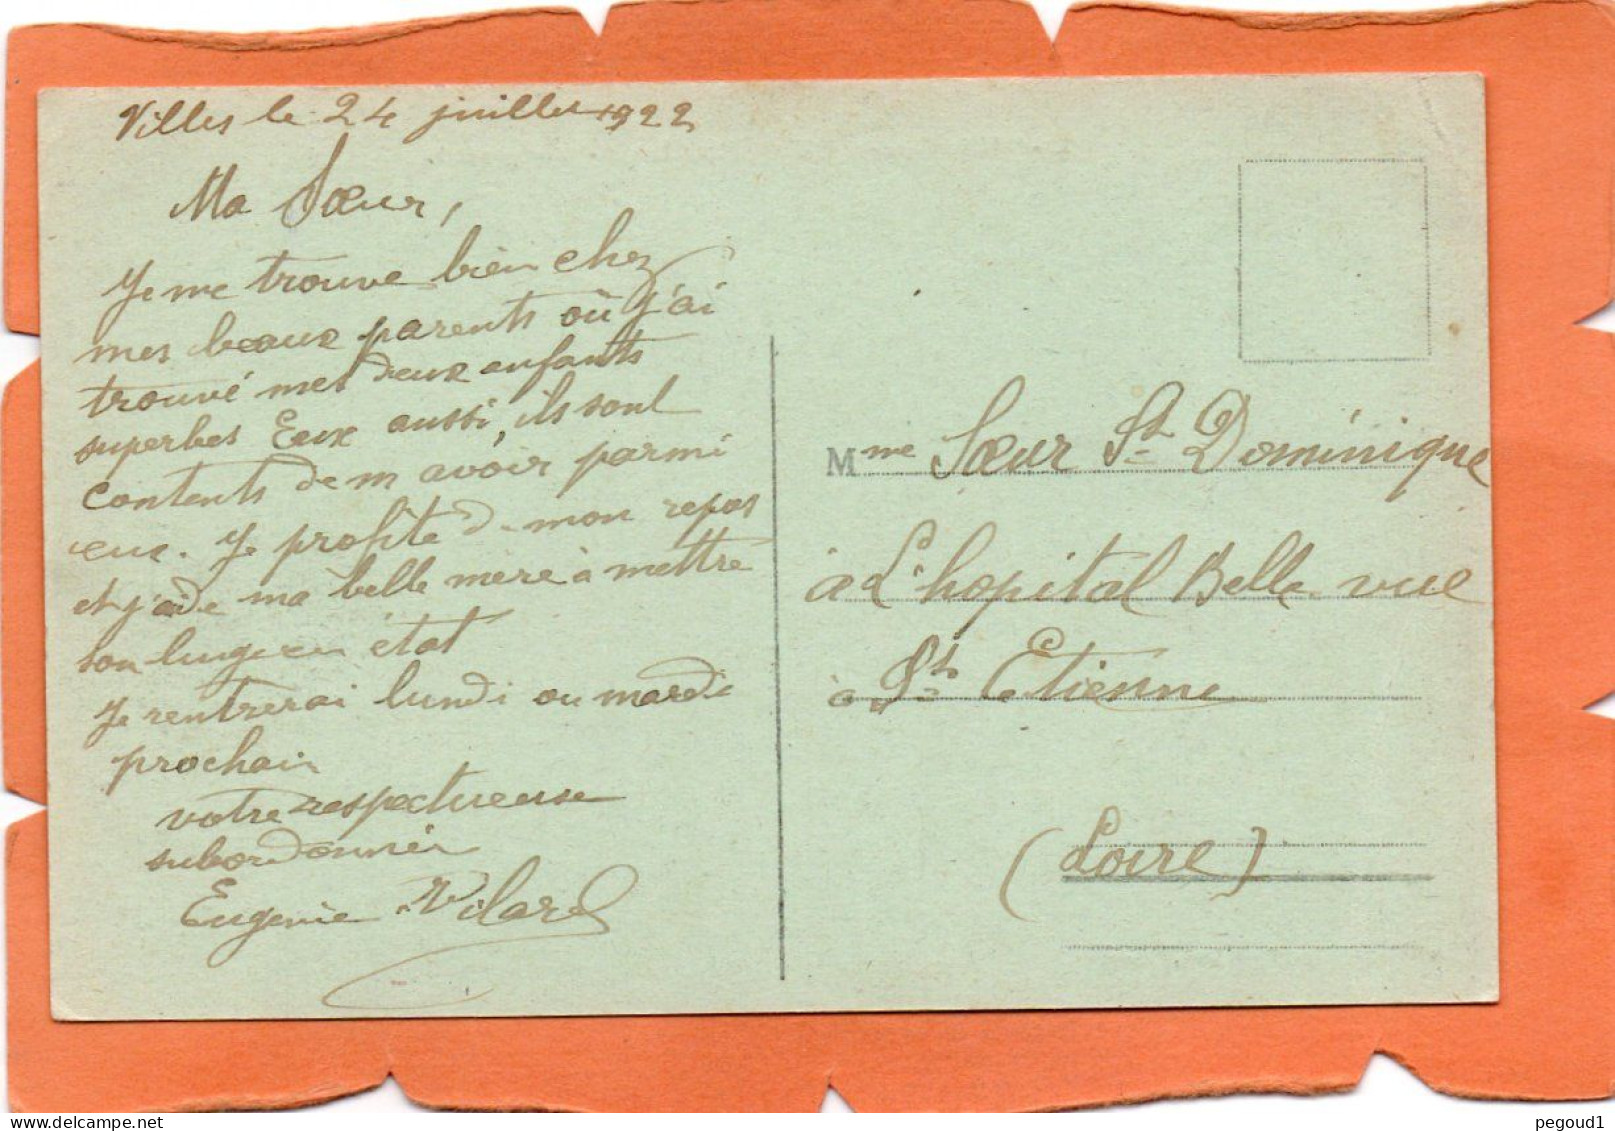 Villes le 24 juillet 1922
Ma Sœur,
Je me trouve bien chez
mes beaux parents où j'ai
trouvé mes deux enfants
superbes Eux aussi, ils sont
contents de m avoir parmi
eux. Je profite de mon repos
et j'aide ma belle mere à mettre
son linge en état
Je rentrerai lundi ou mardi
prochain
votre respectueuse
subordonnée
Eugenie Vilard
Mme Sœur St Dominique
à L'hopital Belle vue
à St Etienne
(Loire)
pegoud1